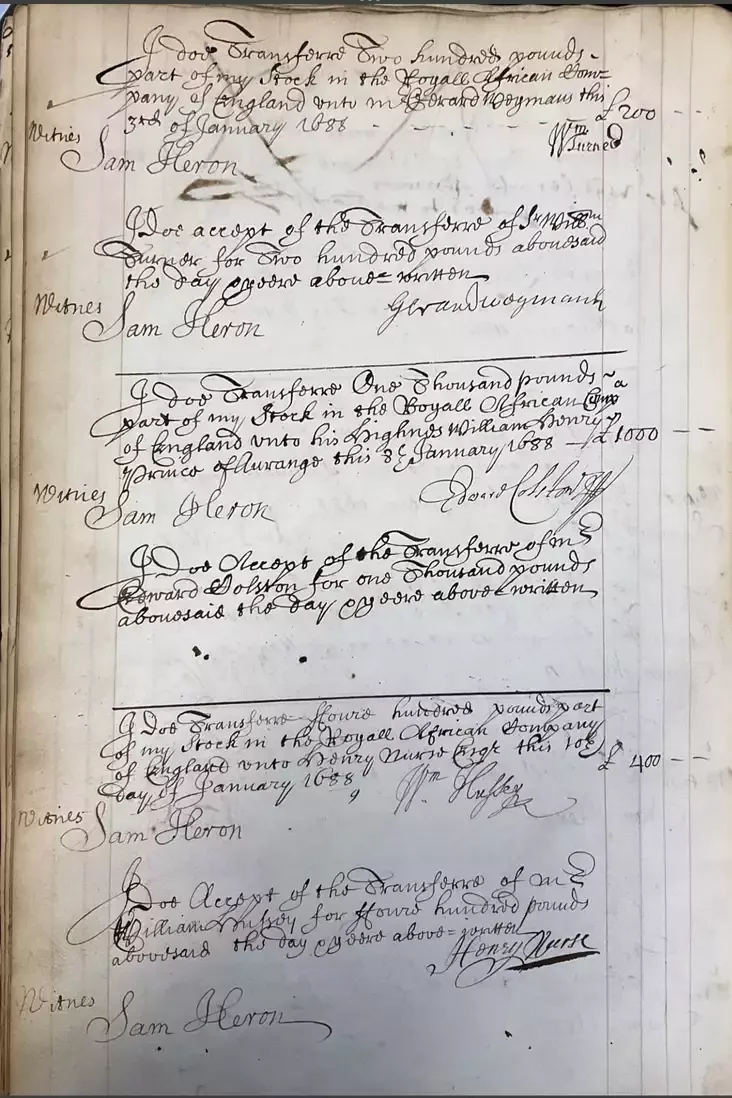 I doe Transferre Two hundred pounds
part of my Stock in the Royall African Com=
pany of England vnto mr Gerard Weymans this
3rd of January 1688 - - - - - - £ 200 - -
Witnes
Wm Turner
Sam Heron
I Doe accept of the Transferre of Sr Willm
Turner for Two hundred pounds abouesaid
the day & yeere aboue= written
Witnes
Gerard weymans
Sam Heron
I doe Transferre One Thousand pounds
part of my Stock in the Royall African Comp
of England vnto his Highnes William Henry
Prince of Aurange this 8th January 1688 — £ 1000 - -
Witnes
Edward Colston
Sam Heron
I Doe Accept of the Transferre of mr
Edward Colston for one Thousand pounds
abouesaid the day & yeere aboue= written
I Doe Transferre ffoure hundred pounds part
of my Stock in the Royall African Company
of England vnto Henry Nurse Esqr this 10th
£ 400 - -
day of January 1688
Wm Hussey
Witnes
Sam Heron
I Doe Accept of the Transferre of mr
William Hussey for ffoure hundred pounds
abouesaid the day & yeere aboue= written
Henry Nurse
Witnes
Sam Heron